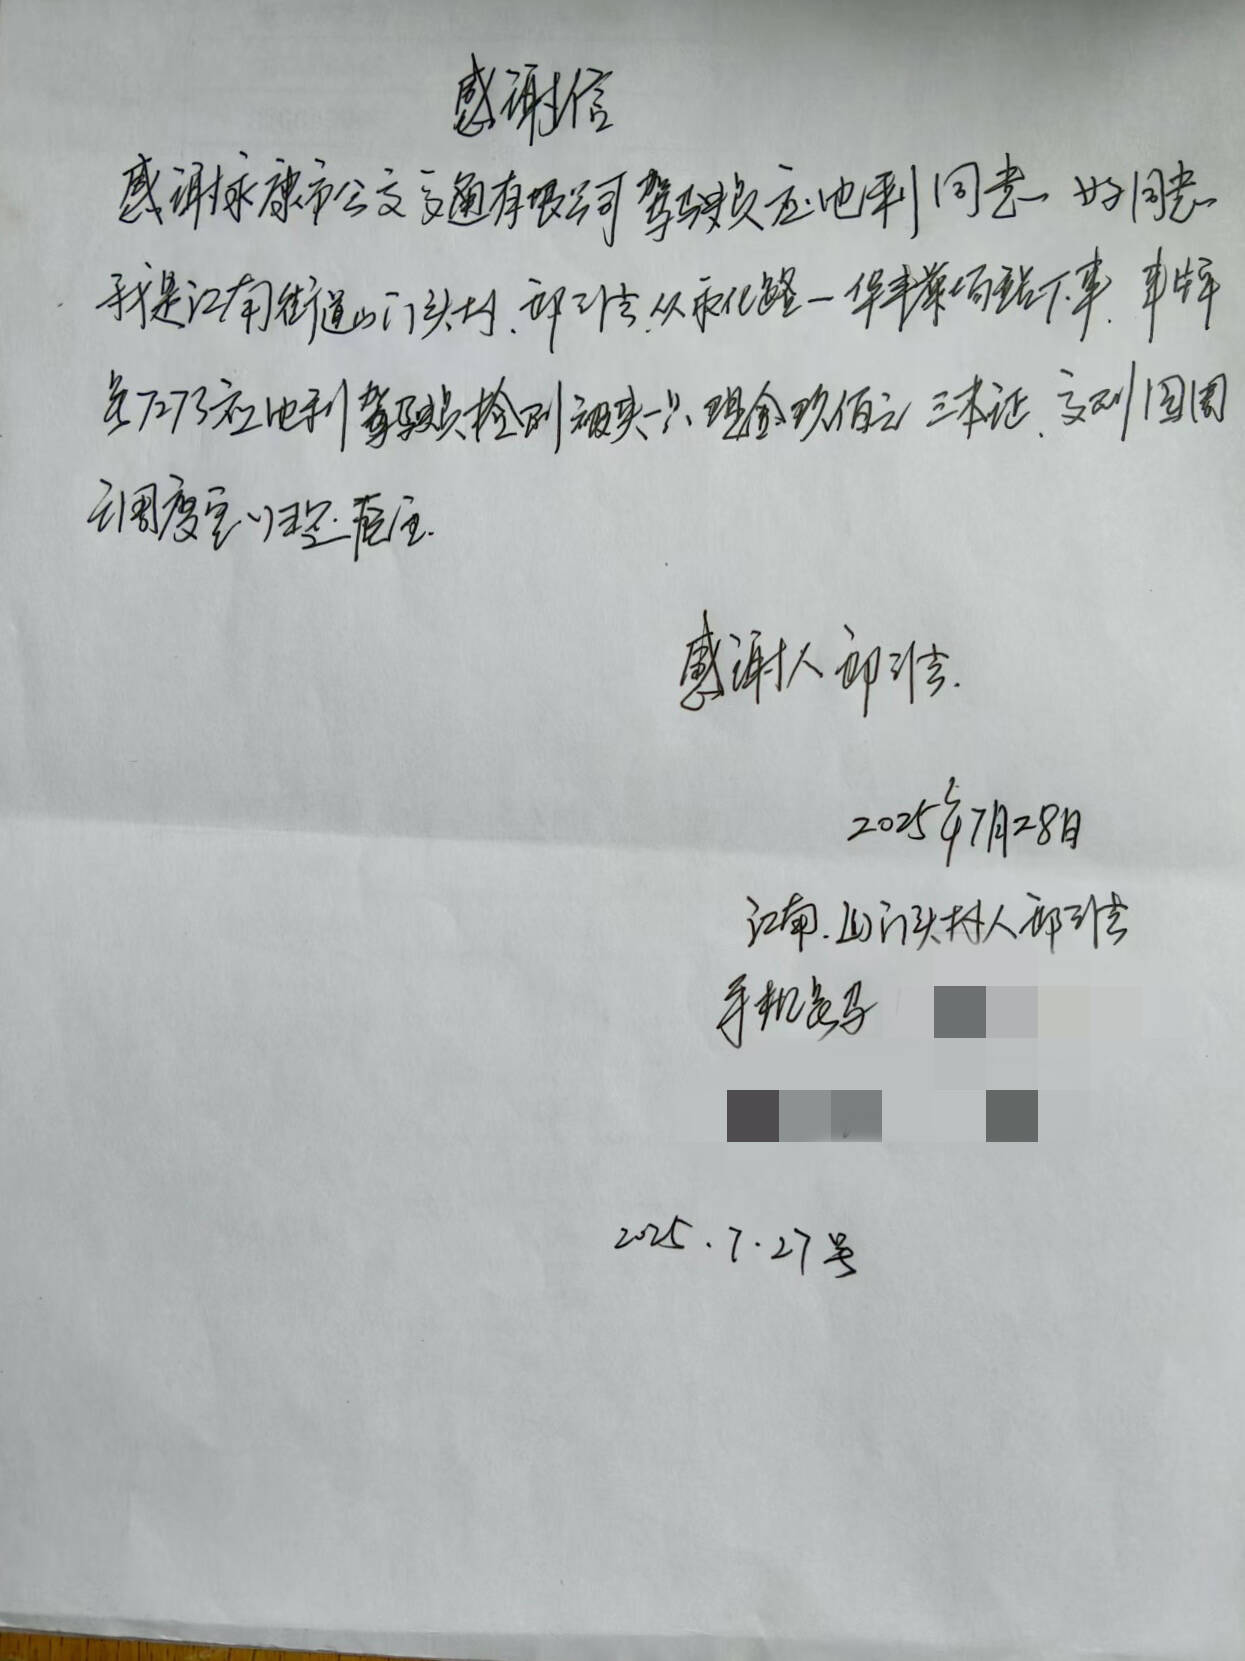 感谢信
感谢永康市公交交通有限公司驾驶员应地利同志 好同志
我是江南街道山门头村.郎引吉.从永化路一华丰菜场站下车.车牌
号7273应地利驾驶员捡到被失一只 现金玖佰元 三本证.交到
调度室
感谢人郎引吉.
2025年7月28日
江南.山门头村人郎引吉
手机号码
2025.7.27号